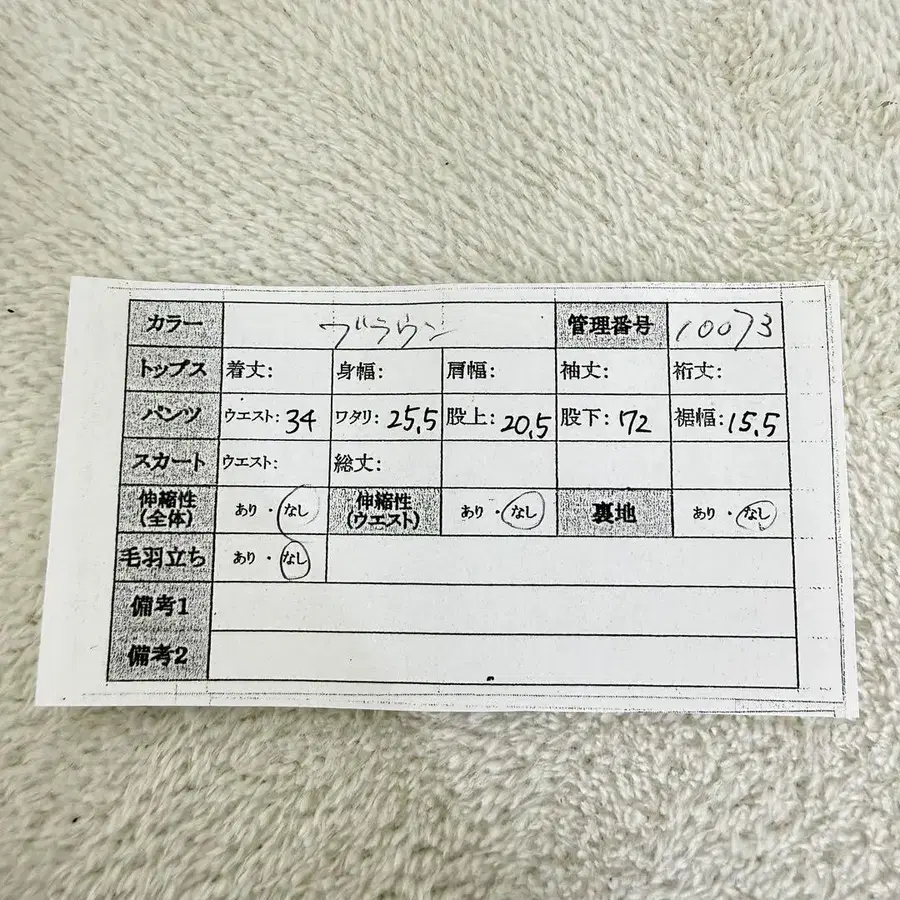 カラー ブラウン 管理番号 10073
トップス 着丈: 身幅: 肩幅: 袖丈: 裄丈:
パンツ ウエスト: 34 ワタリ: 25.5 股上: 20.5 股下: 72 裾幅: 15.5
スカート ウエスト: 総丈:
伸縮性(全体) あり・なし 伸縮性(ウエスト) あり・なし 裏地 あり・なし
毛羽立ち あり・なし
備考1
備考2